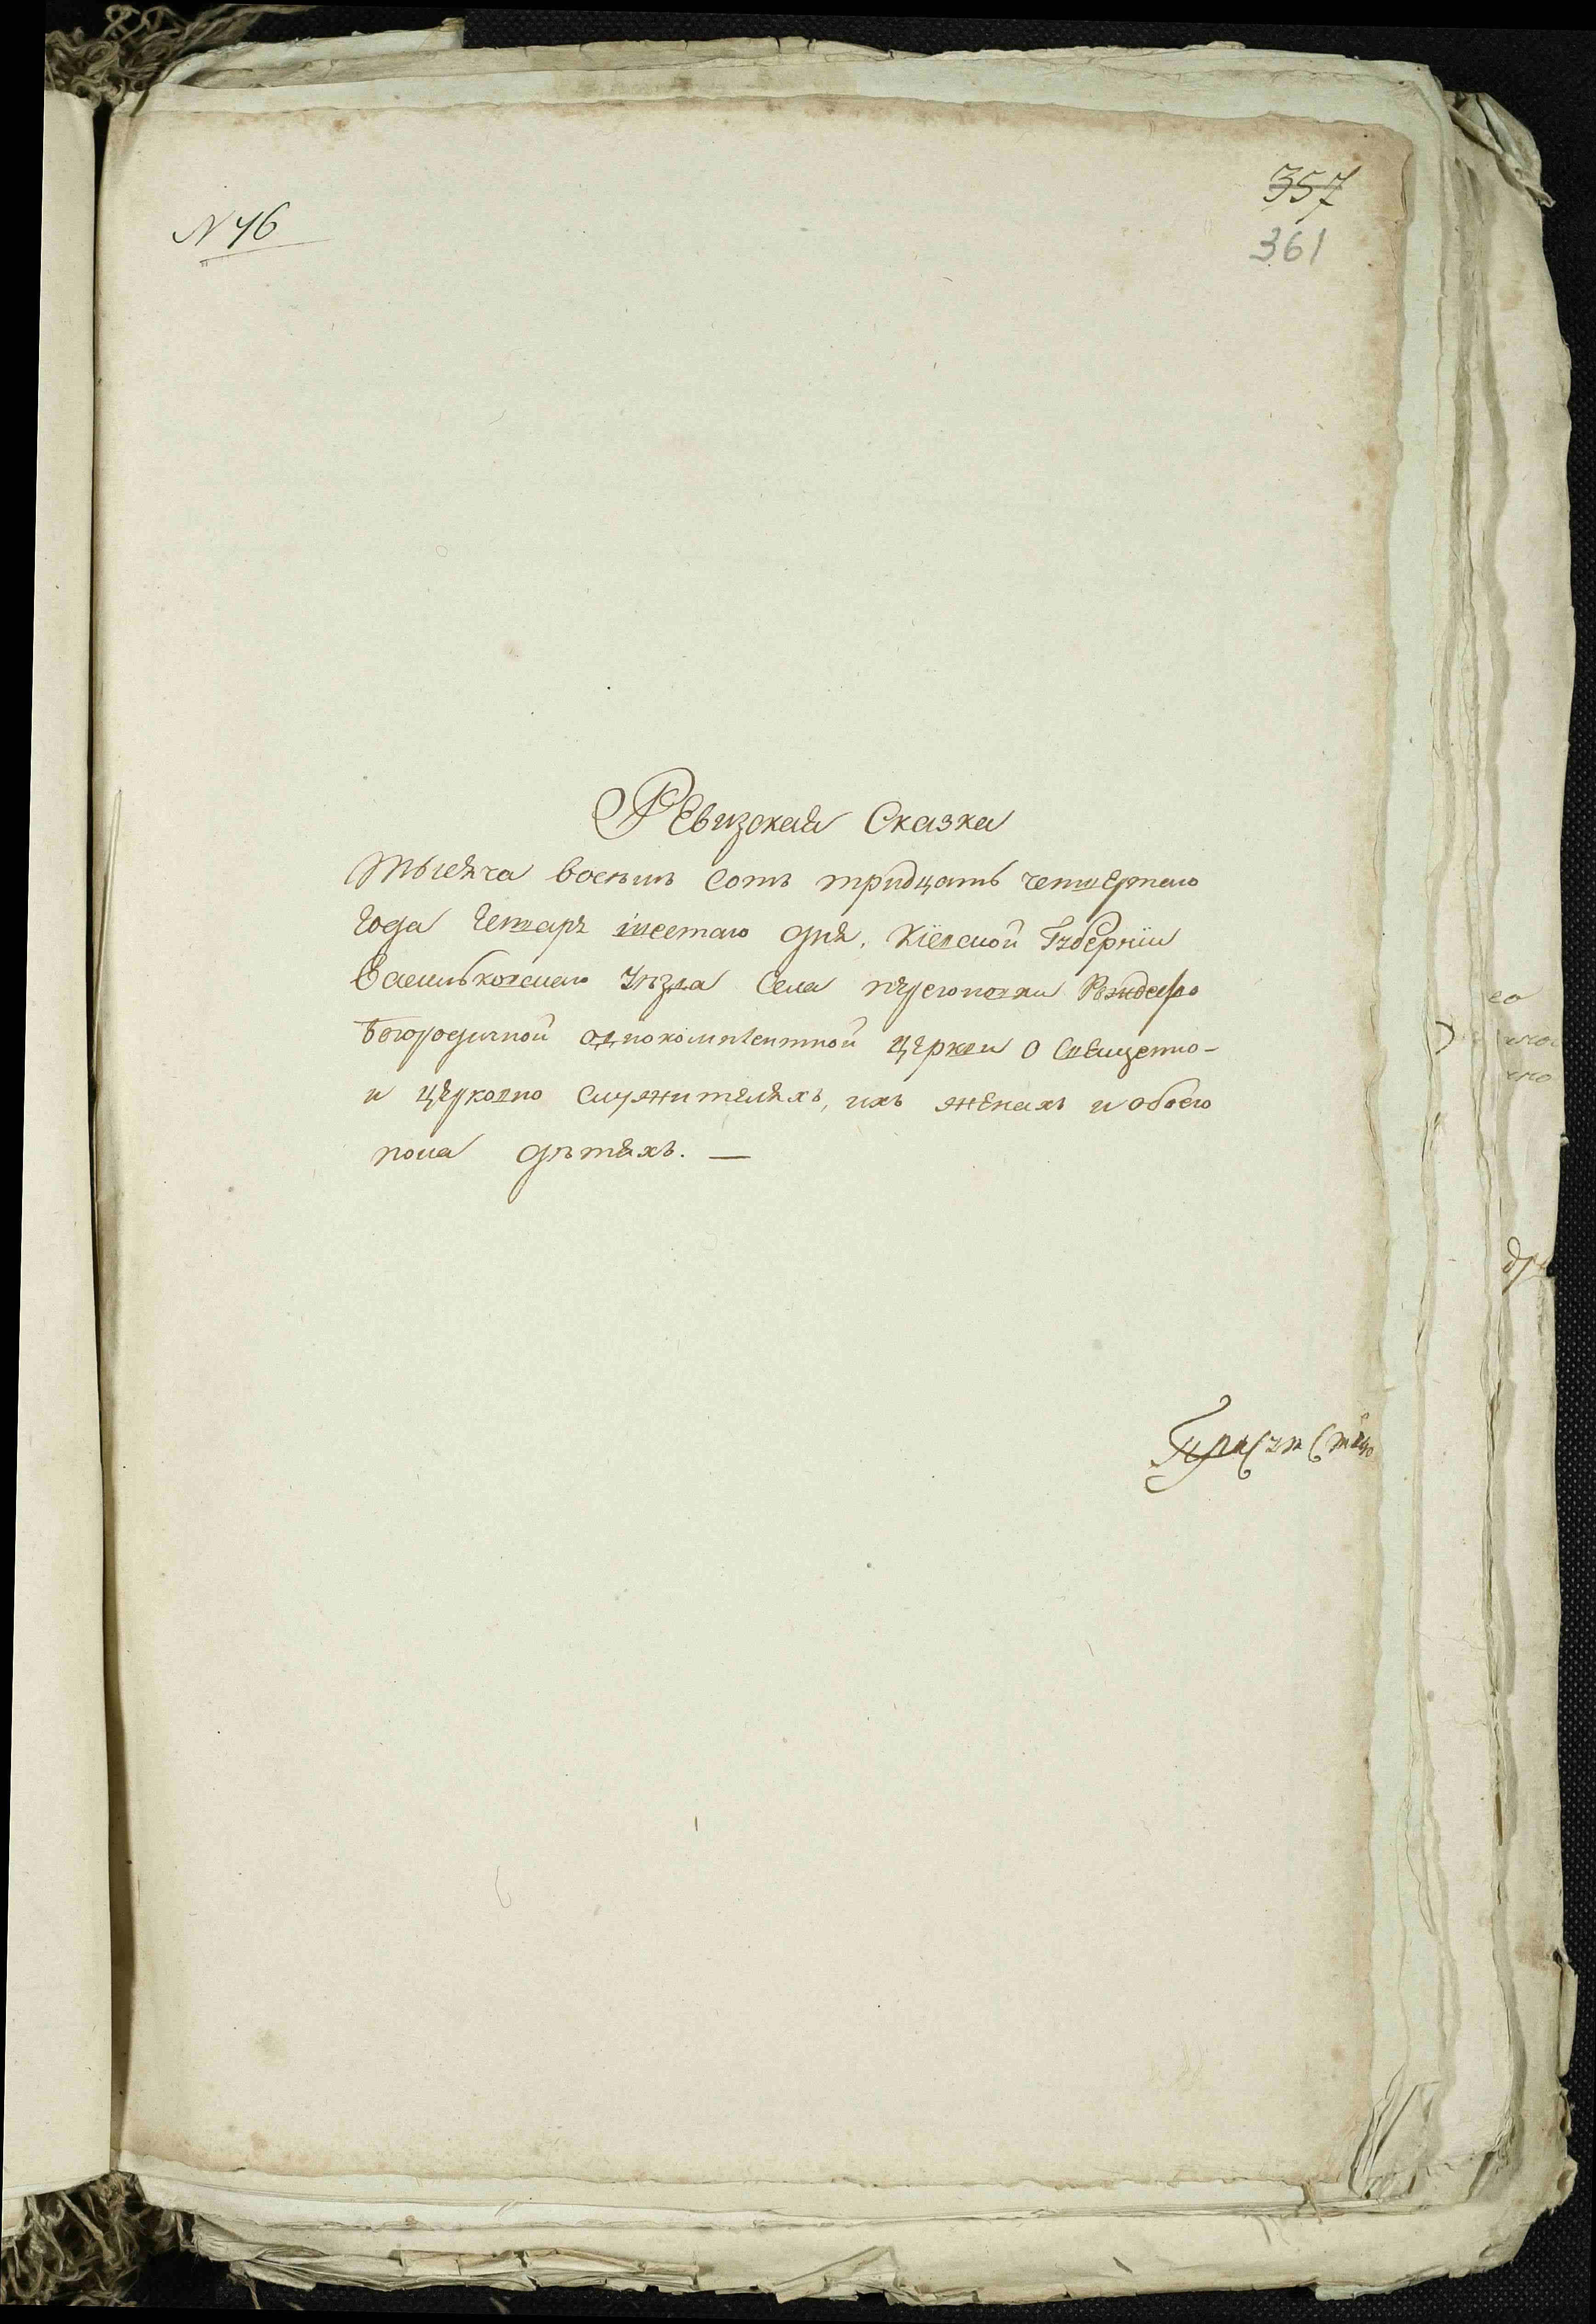 N 46
357
361
Ревизская Сказка
Тысяча восемь сотъ тридцать четвертаго
года Генваря шестаго дня, Кіевской Губерніи
Васильковскаго Уѣзда Села Рождество
Богородичной однокомплектной церкви о Священно-
и церковно служителяхъ, ихъ женахъ и обоего
пола дѣтяхъ. —